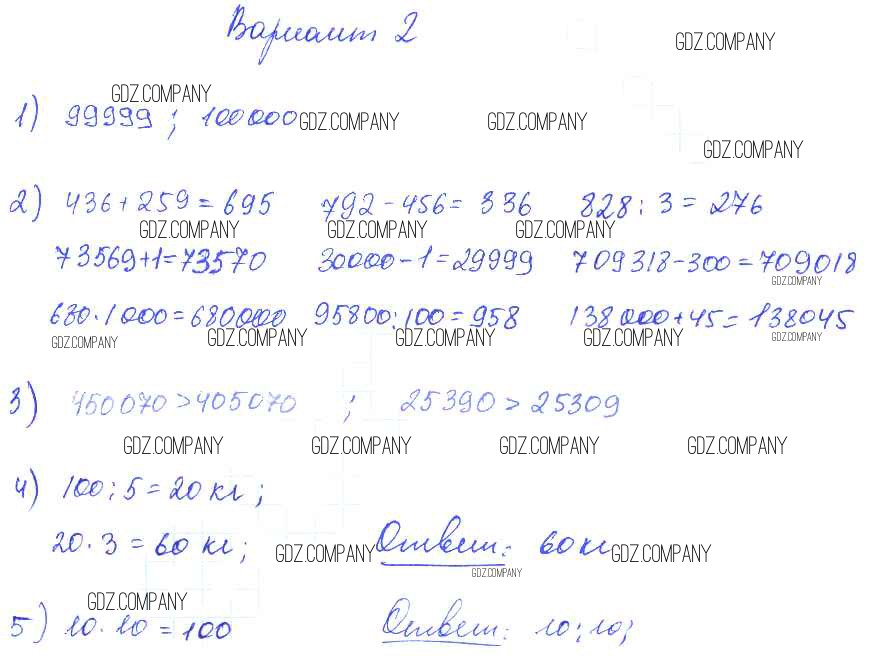 Вариант 2
GDZ.COMPANY
GDZ.COMPANY
1) 99999 ; 100000 GDZ.COMPANY GDZ.COMPANY
GDZ.COMPANY
2) 436 + 259 = 695 792 - 456 = 336 828 : 3 = 276
GDZ.COMPANY GDZ.COMPANY GDZ.COMPANY
73569+1=73570 30000-1=29999 709318-300=709018
GDZ.COMPANY
680·1000=680000 95800:100=958 138000+45=138045
GDZ.COMPANY GDZ.COMPANY GDZ.COMPANY GDZ.COMPANY GDZ.COMPANY
3) 450070 > 405070 ; 25390 > 25309
GDZ.COMPANY GDZ.COMPANY GDZ.COMPANY GDZ.COMPANY
4) 100 : 5 = 20 кг ;
20 · 3 = 60 кг ; GDZ.COMPANY Ответ: 60 кг GDZ.COMPANY
GDZ.COMPANY
GDZ.COMPANY
5) 10 · 10 = 100 Ответ: 10; 10;